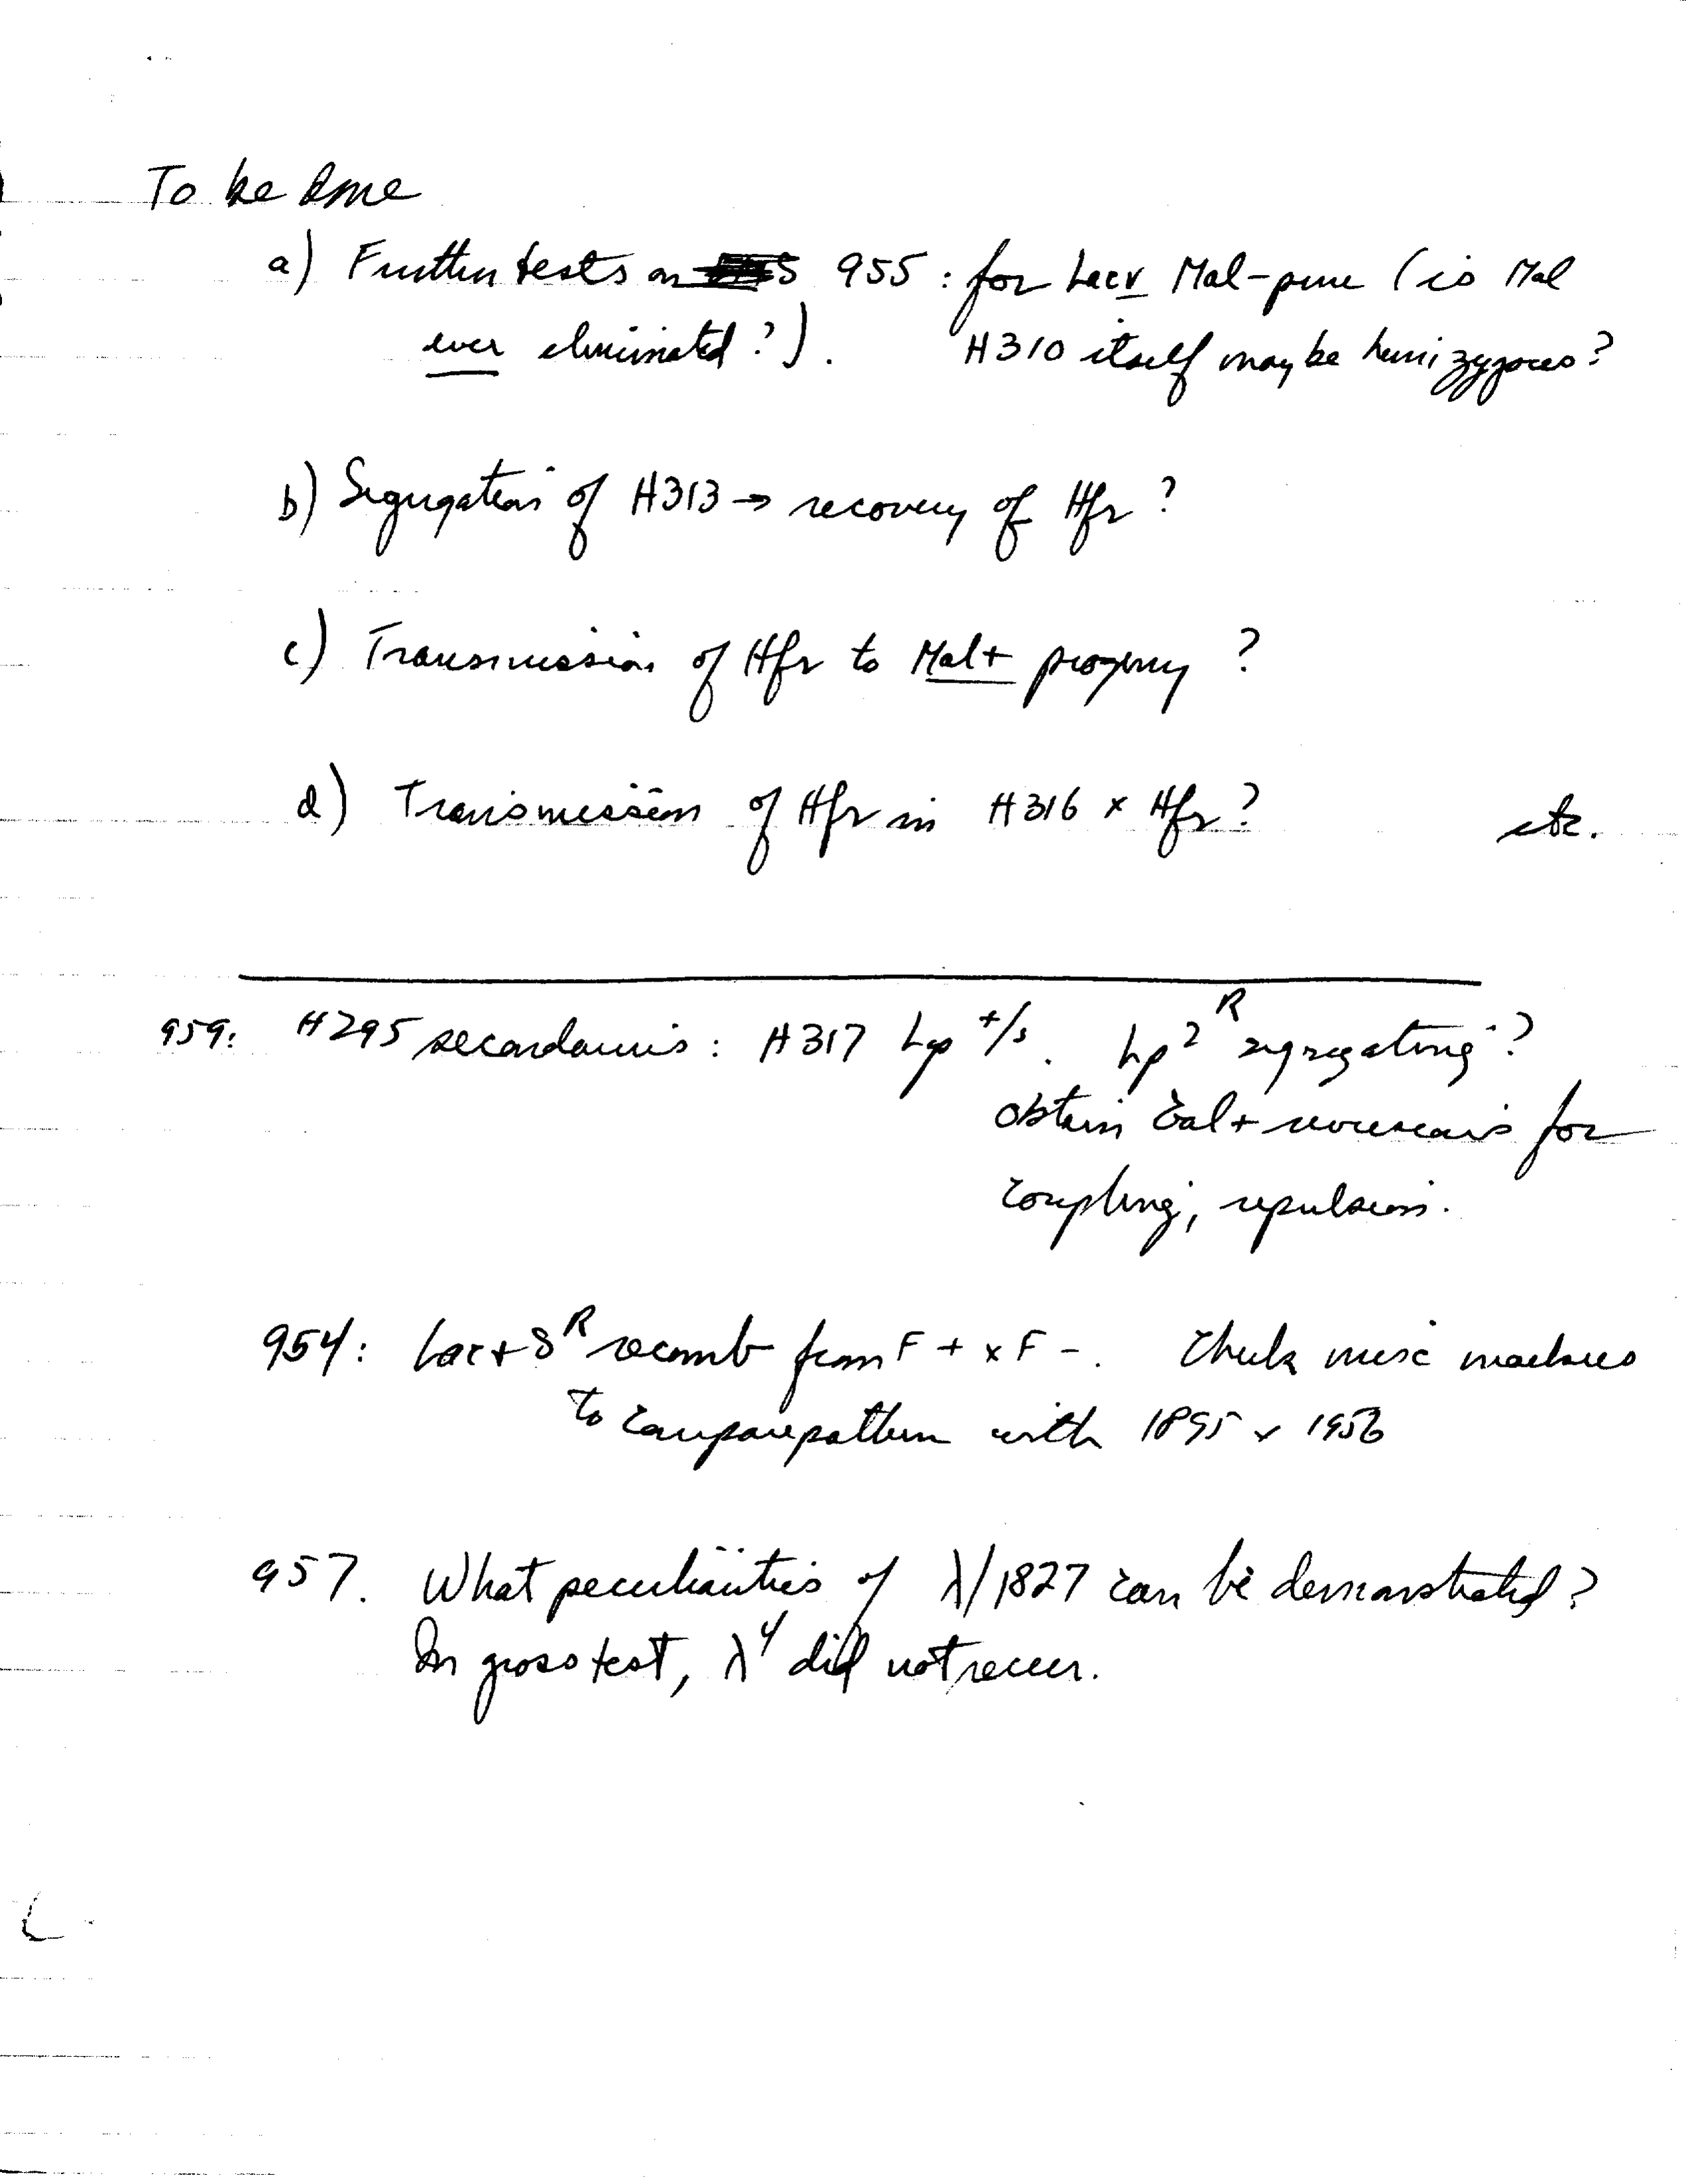 To be done
a) Further tests on 955: for Lacv Mal-pure (is Mal
ever eliminated?). H310 itself may be hemizygous?
b) Segregation of H313 → recovery of Hfr?
c) Transmission of Hfr to Mal+ progeny?
d) Transmission of Hfr in H316 x Hfr? etc.
959: H295 secondaries: H317 Lp +/s. Lp2^R segregating?
obtain Gal+ reversions for
coupling, repulsion.
954: Lac+ S^R recomb from F+ x F-. Check misc markers
to compare pattern with 1895 x 1956
957. What peculiarities of λ/1827 can be demonstrated?
In gross test, λ^4 did not recur.